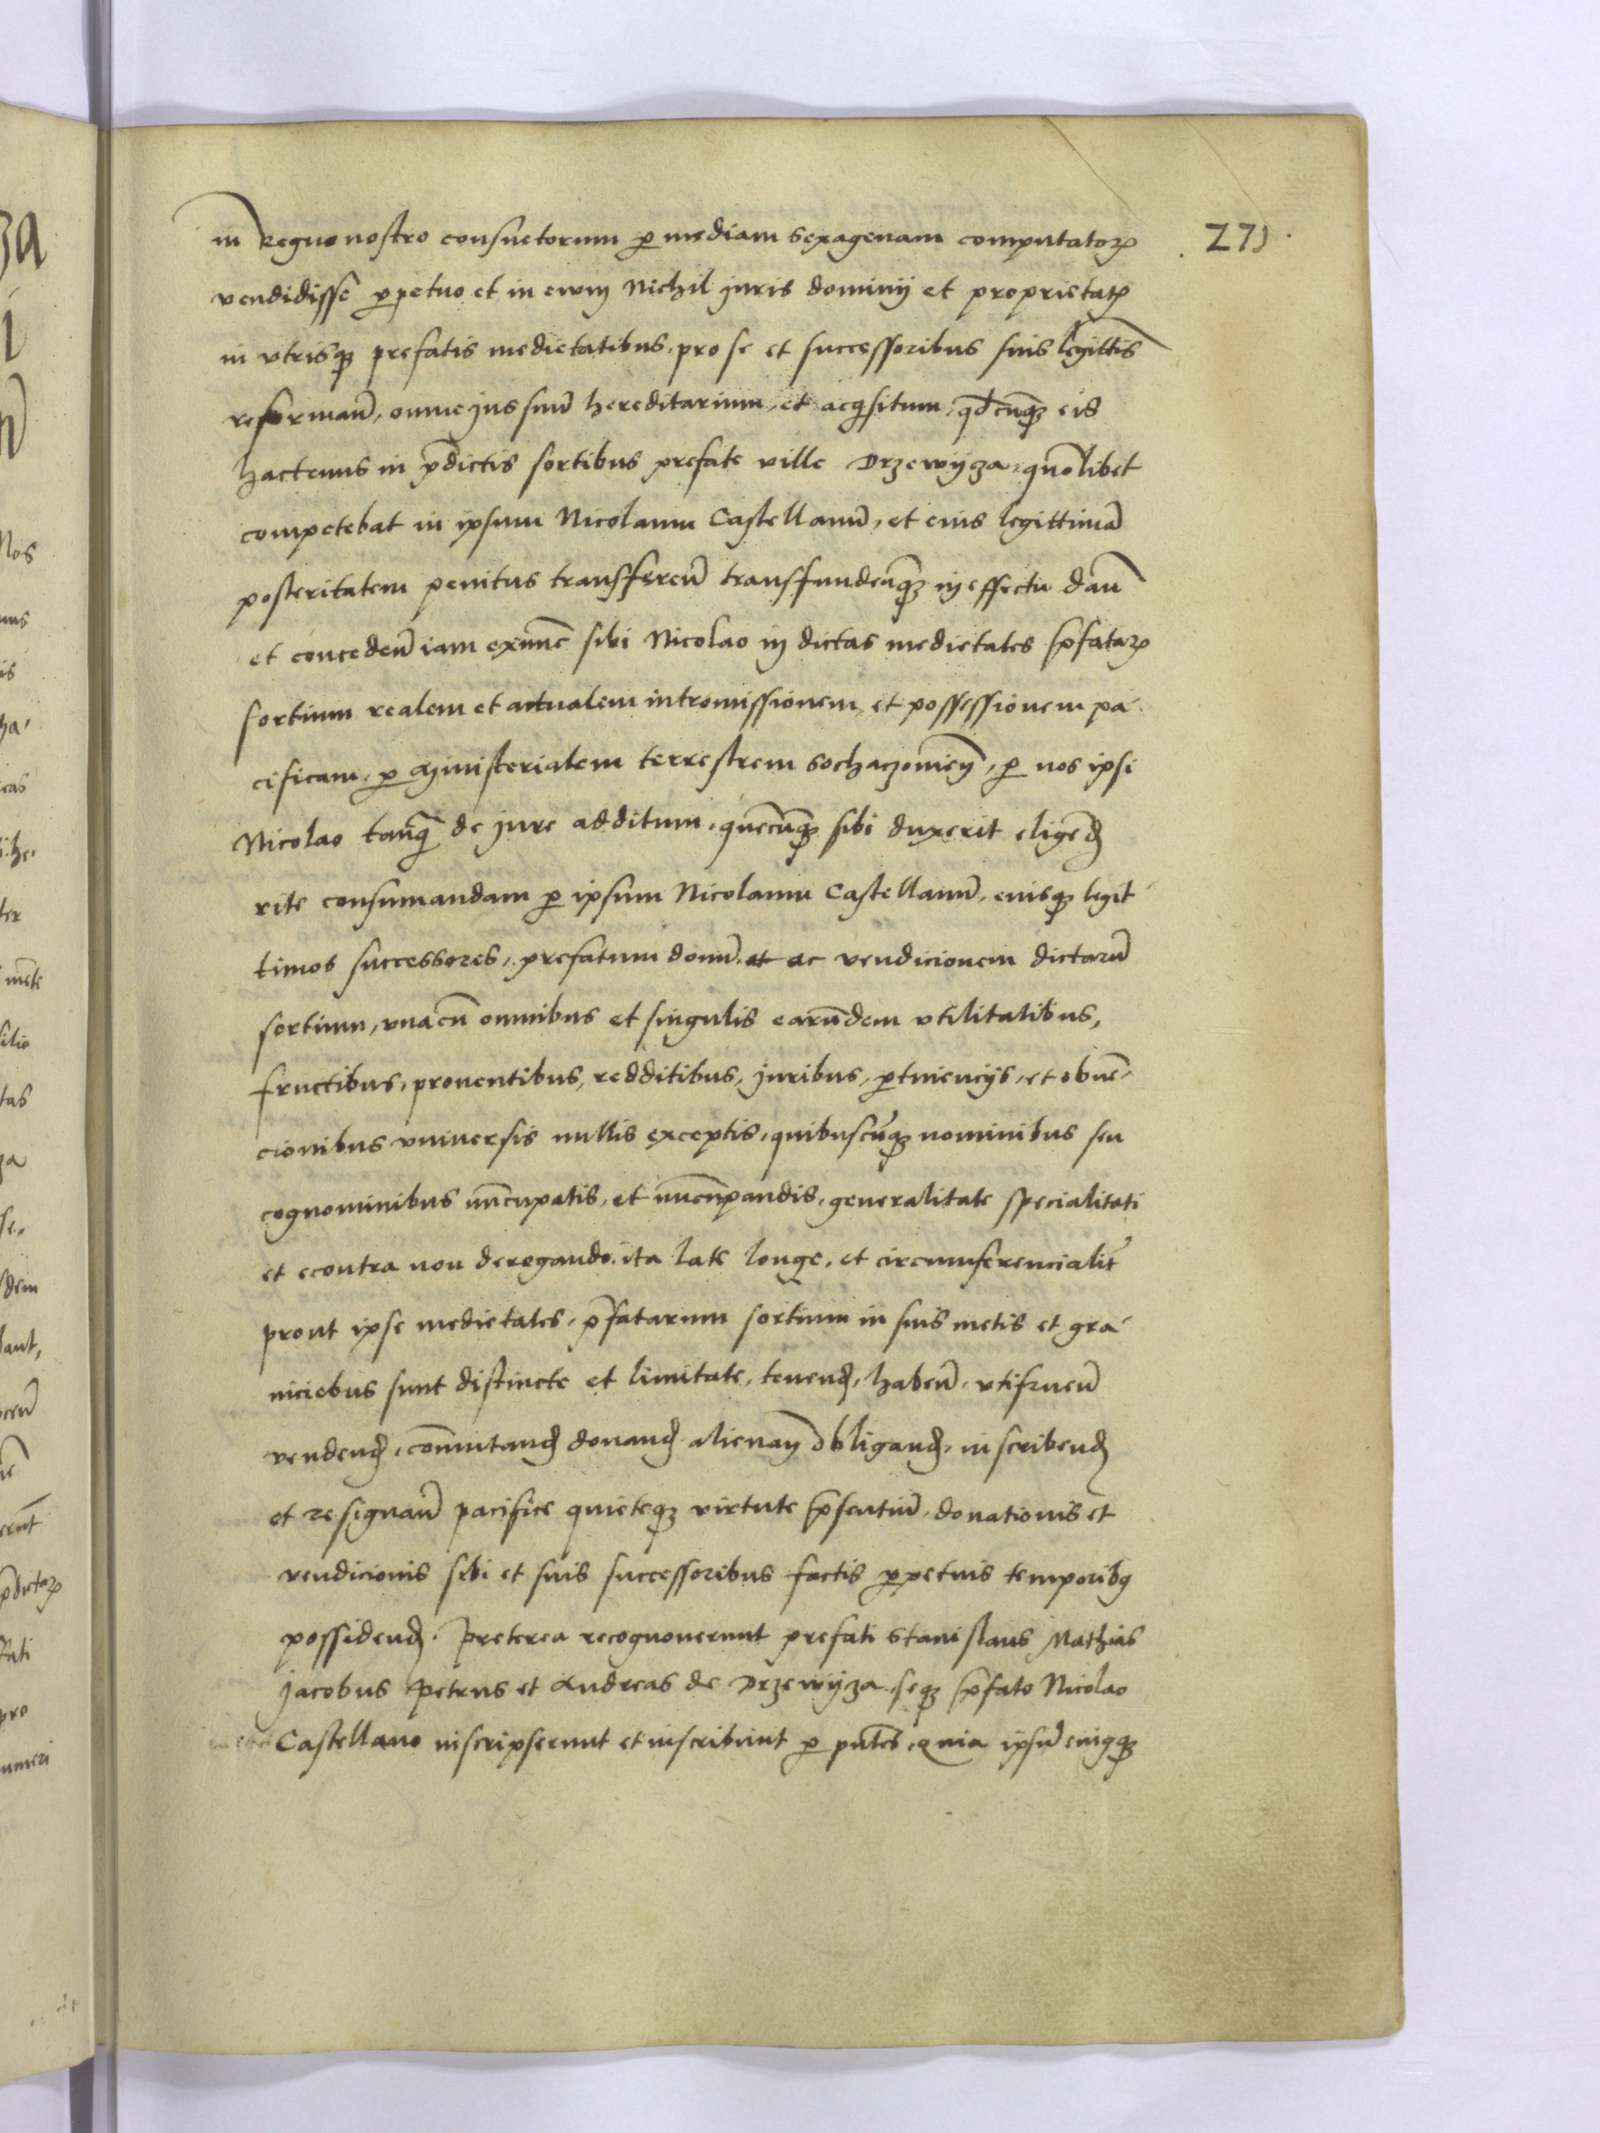 271.
in Regno nostro consuetorum ꝑ mediam sexagenam computatoꝝ
vendidisse ꝑpetuo et in ewm Nichil juris dominij et proprietatꝭ
in vtrisqꝫ prefatis medietatibus, pro se et successoribus suis legittīs
reserman̄, omne jus suū hereditarium, et acqͥsitum, qd̄cūqꝫ eis
hactenus in p̄dictis sortibus prefate ville Drzewycza, quōlibet
competebat in ipsum Nicolaum Castellanū, et eius legittimā
posteritatem penitus transfferen̄ transfundenq̄ꝫ in effectu dan̄
et conceden̄ iam exnūc sibi Nicolao in dictas medietates p̄fataꝝ
sortium realem et actualem intromissionem, et possessionem pa
cificam, ꝑ Ministerialem terrestrem Sochaczowien̄, ꝑ nos ipsi
Nicolao tanq̄ de jure additum, quēcūqꝫ sibi duxerit eligen̄d
rite consumandam ꝑ ipsum Nicolaum Castellanū, eiusqꝫ legit
timos successores, prefatum donū et ac vendicionem dictarū
sortium, vnacū omnibus et singulis earūdem vtilitatibus,
fructibus, prouentibus, redditibus, juribus, ꝑtinencijs, et obuē
cionibus vniuersis nullis exceptis, quibuscūqꝫ nominibus seu
cognominibus nūcupatis, et nūcupandis, generalitate specialitati
et econtra non derogando, ita late longe, et circumferencialit̄
prout ipse medietates, p̄fatarum sortium in suis metis et gra
niciebus sunt distincte et limitate, tenend, haben̄, vtifruen̄
vendend, cōmutand donand alienan̄ obligand, inscribend
et resignan̄ pacifice quieteqꝫ virtute p̄sentiū, donationis et
vendicionis sibi et suis successoribus factis ꝑpetuis temporibꝯ
possidend. Preterea recognouerunt prefati Stanislaus Mathias
Jacobus Petrus et Andreas de Drzewycza, seqꝫ p̄fato Nicolao
Castellano inscripserunt et inscribunt ꝑ pn̄tes, quia ipsū eiꝯqꝫ